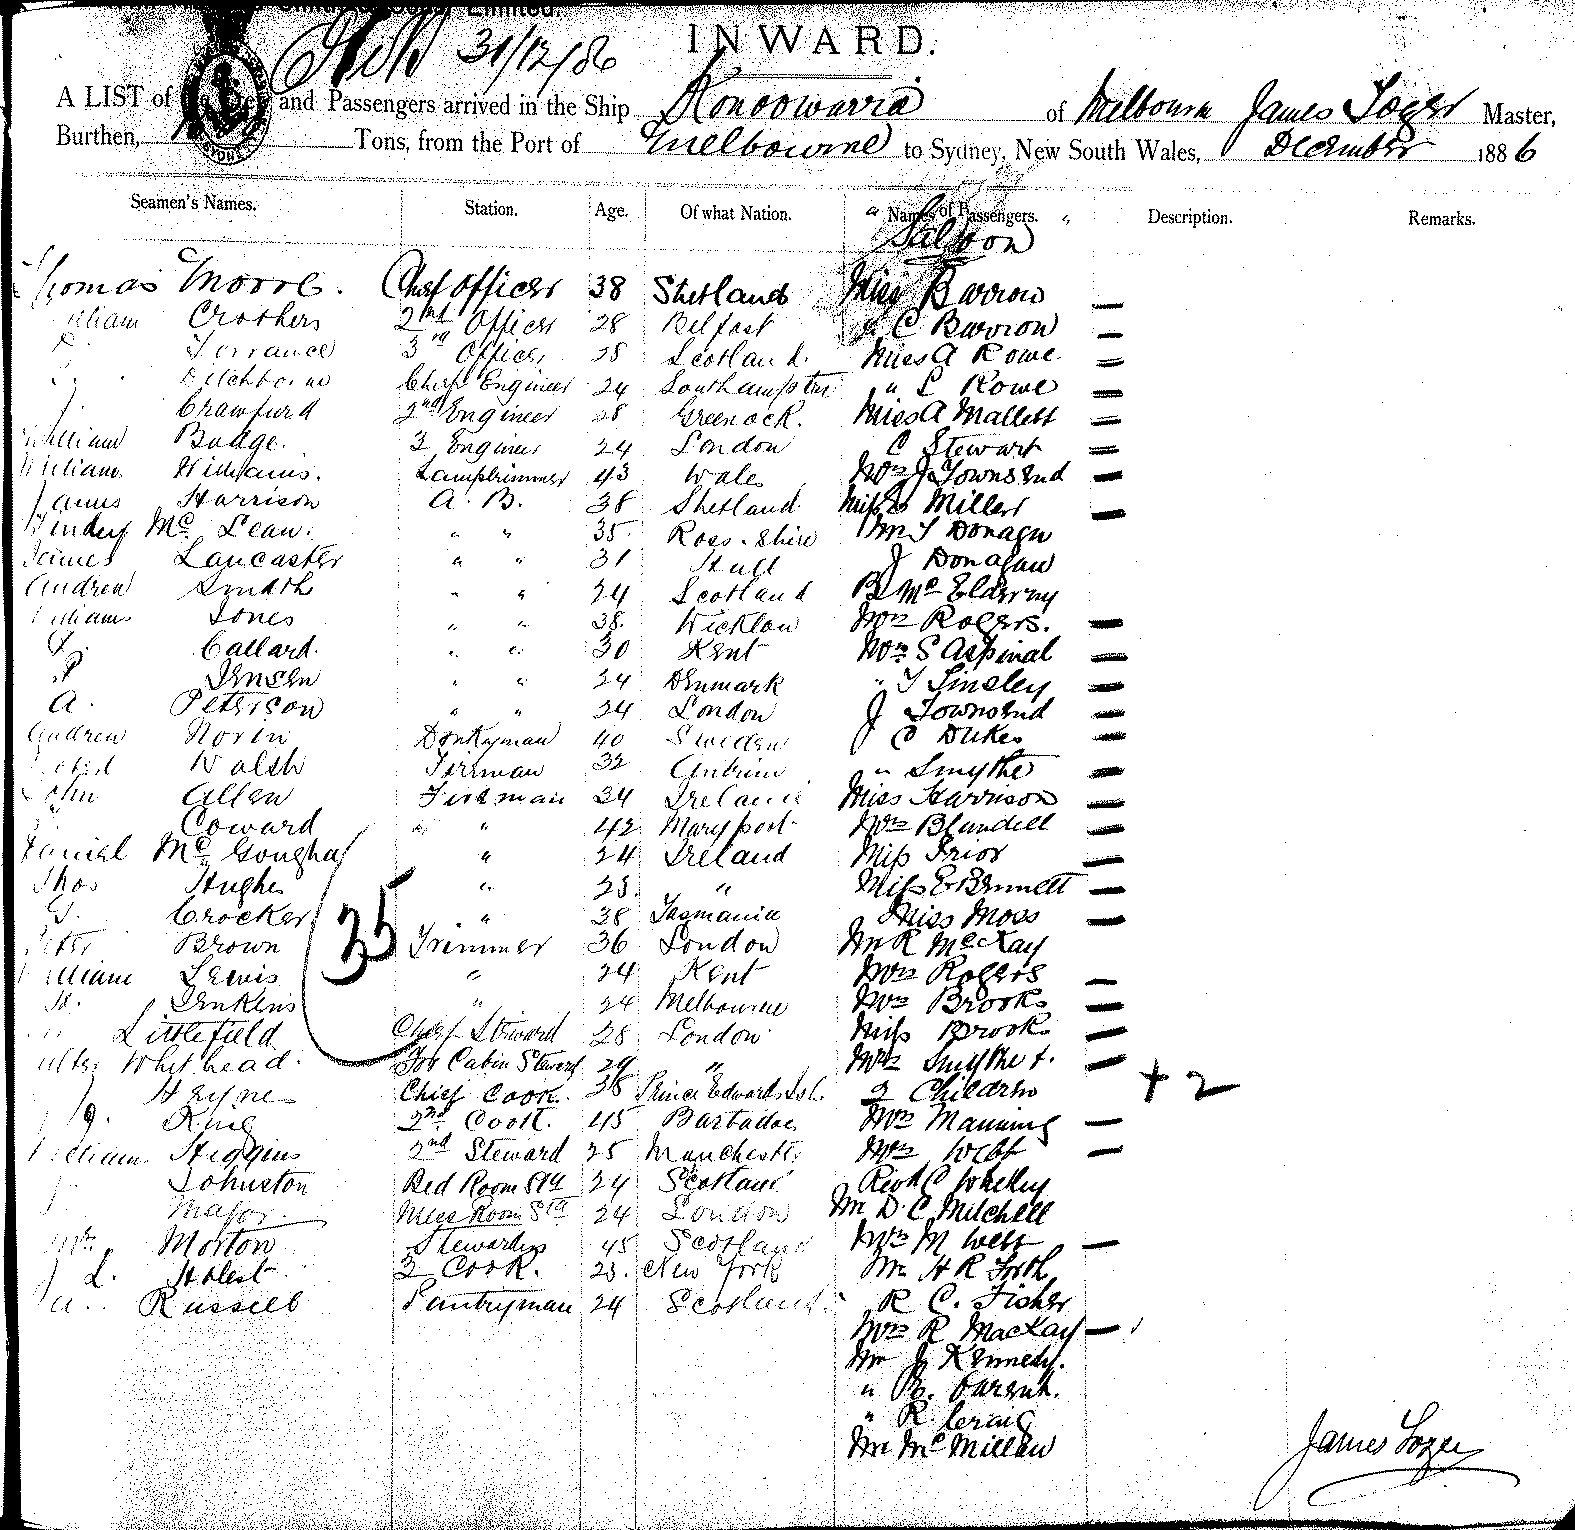 Limited.
31/12/86
INWARD.
A LIST of and Passengers arrived in the Ship Konoowarra of Melbourne James Lozer Master,
Burthen, Tons, from the Port of Melbourne to Sydney, New South Wales, December 1886
Seamen's Names. Station. Age. Of what Nation. " Names of Passengers. " Description. Remarks.
Saloon
Thomas Moore. Chief Officer 38 Shetland Miss Barrow
William Crothers 2nd Officer 28 Belfast " C Barron
Torrance 3rd Officer 28 Scotland. Miss A Rowe
Chief Engineer 24 Southampton " L Rowe
J. Crawfurd 2nd Engineer 28 Greenock. Miss A Mallett
William Budge. 3 Engineer 24 London C Stewart
William Williams. Lamptrimmer 43 Wales Mrs J Townsend
James Harrison A. B. 38 Shetland Miss Miller
Mc Lean. " " 35 Ross-shire Mr T Donagu
James Lancaster " " 31 Hull J Donagan
Andrew Smith " " 24 Scotland B McElderry
William Jones " " 38. Wicklow Mrs Rogers.
Callard. " " 30 Kent Mrs S Aspinal
Jensen " " 24 Denmark " T Tinsley
A. Peterson " " 24 London J Townsend
Andrew Noren Donkeyman 40 Sweden J C Dukes
Walsh Fireman 32 Antrim " Smythe
John Allen Fireman 34 Ireland Miss Harrison
Coward " " 42 Maryport Mrs Blundell
Daniel Mc " 24 Ireland Miss Prior
Thos Hughes " 25. " Miss E Bennett
G. Crocker " 38 Tasmania Miss Moss
35
Peter Brown Trimmer 36 London Mr R McKay
William Lewis " 24 Kent Mrs Rogers
Jenkens " 24 Melbourne Mrs Brooks
Littlefield Chief Steward 28 London Miss Brook
Whitehead. For Cabin Steward 29 " Mrs Smythe &
Heyne Chief Cook. 38 Prince Edwards Isl. 2 Children + 2
King 2nd Cook. 45 Barbadoes Mrs Manning
William Higgins 2nd Steward 25 Manchester Mrs Webb
Johnston Bed Room Std 24 Scotland Revd C Whelley
Major Mess Room Std 24 London Mr D. C. Mitchell
Mrs Morton Stewardess 45 Scotland Mrs M Webb
L. Holest 3 Cook. 25. New York Mr H R Forth
A. Russell Pantryman 24 Scotland R C. Fisher
Mrs R MacKay
Mr J Kennedy.
" B.
" R. Craig
Mr McMillan
James Lozer